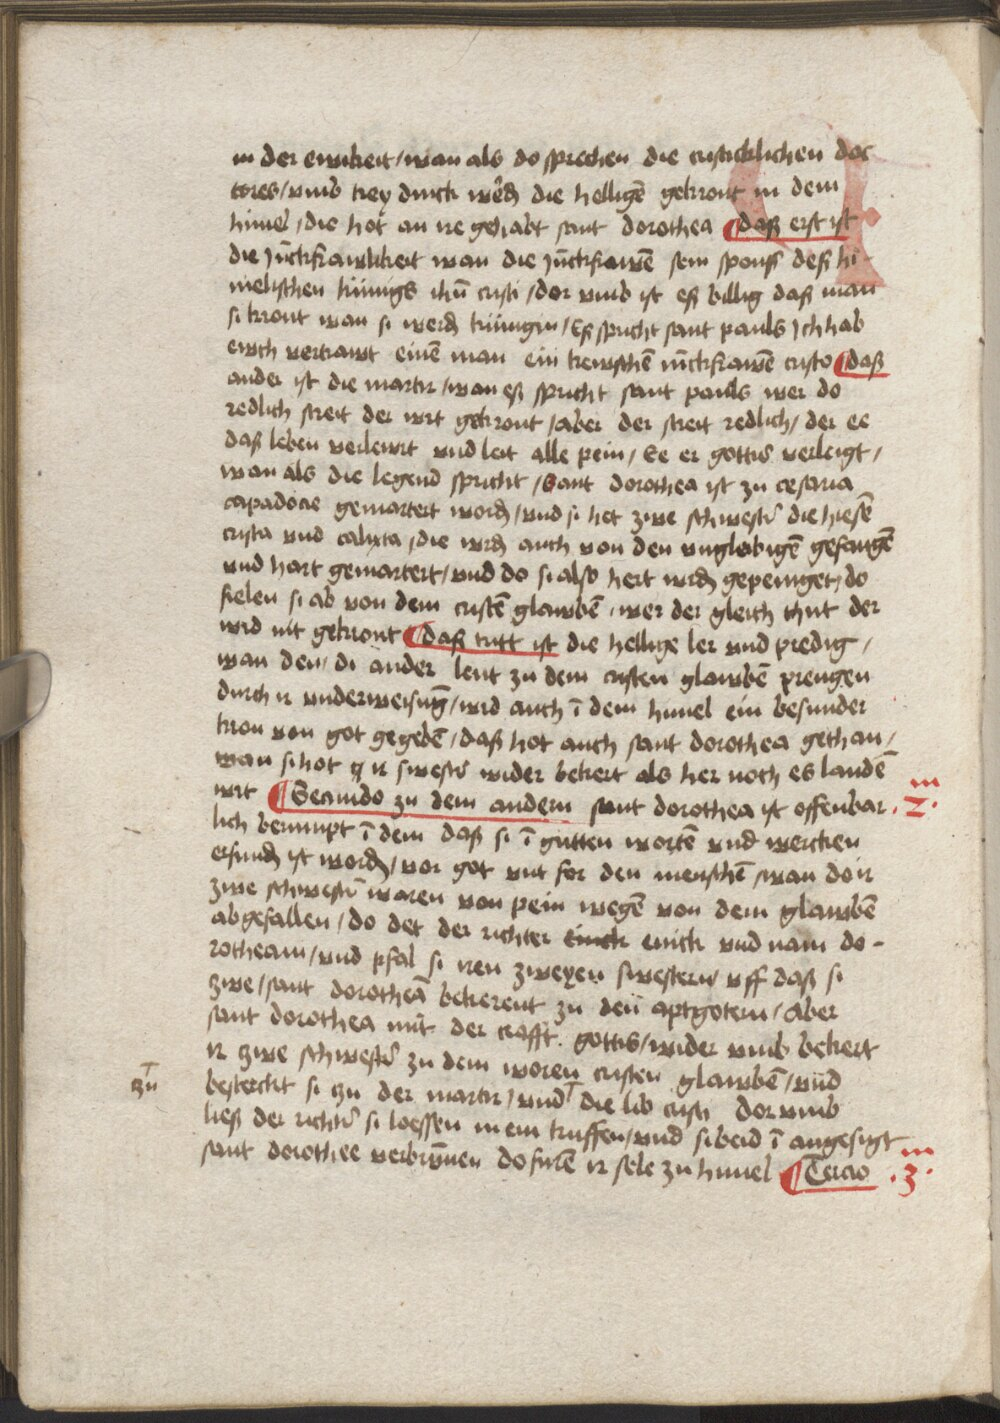 in der ewikeit / wan als do sprechen die cristicklichen doc
tores / umb trey dinck werdē die helligē gekront in dem
himel / die hot an ire gehabt sant dorothea daß erst ist
die jūckfrawlikeit wan die jūckfrawē sein spons deß hi
melischen kūnigs ihū cristi / dor umb ist eß billig daß man
si kront wan si werdē kūnigin / Eß spricht sant pauls Ich hab
ewch vertrawt einē man ein kewschē iūckfrawē cristo daß
ander ist die martir / wan eß spricht sant pauls wer do
redlich streit der wirt gekront / aber der streit redlich / der ee
daß leben verlewrt und leit alle pein / Ee er gottis verleigt /
wan als die legend spricht / Sant dorothea ist zu cesaria
capadocie gemartert wordē / und si het zwe schwestˢ die hiesē
crista und calixta / die wrdē auch von den unglebigē gefangē
und hart gemartert / und do si also hert wrdē gepeiniget / do
fielen si ab von dem cristē glawbē / wer der gleich thut der
wrd nit gekront daß tritt ist die hellige ler und predig /
wan den / di ander leut zu dem cristen glawbē prengen
durch ir underweisung / wrd auch ī dem himel ein besunder
kron von got gegebē / daß hot auch sant dorothea gethan /
wan si hot ir swestˢ wider bekert als her noch es landē
wrt Secundo zu dem andern sant dorothea ist offenbar . 2 . m
lich berumpt ī dem daß si ī gutten wortē und wercken
erfundē ist wordē / vor got unt for den menschē / wan do ir
zwe schwestˢ waren von pein wegē von dem glawbē
abgefallen / do det der richter einck und nam do -
rotheam / und pfal si iren zweyen swestern / uff daß si
zwe / sant dorotheā bekerent zu den aptgotern / Aber
sant dorothea mit der crafft gottis / wider umb bekert
ir zwe schwestˢ zu dem woren cristen glawbē / und
zū bestercht si zu der martir / und die lib cristi dor umb
ließ der richtˢ si loessen in ein kruffen / und si beid ī angesigt
sant dorothee verbrūnen do furē ir sele zu himel Tercio . 3 . m